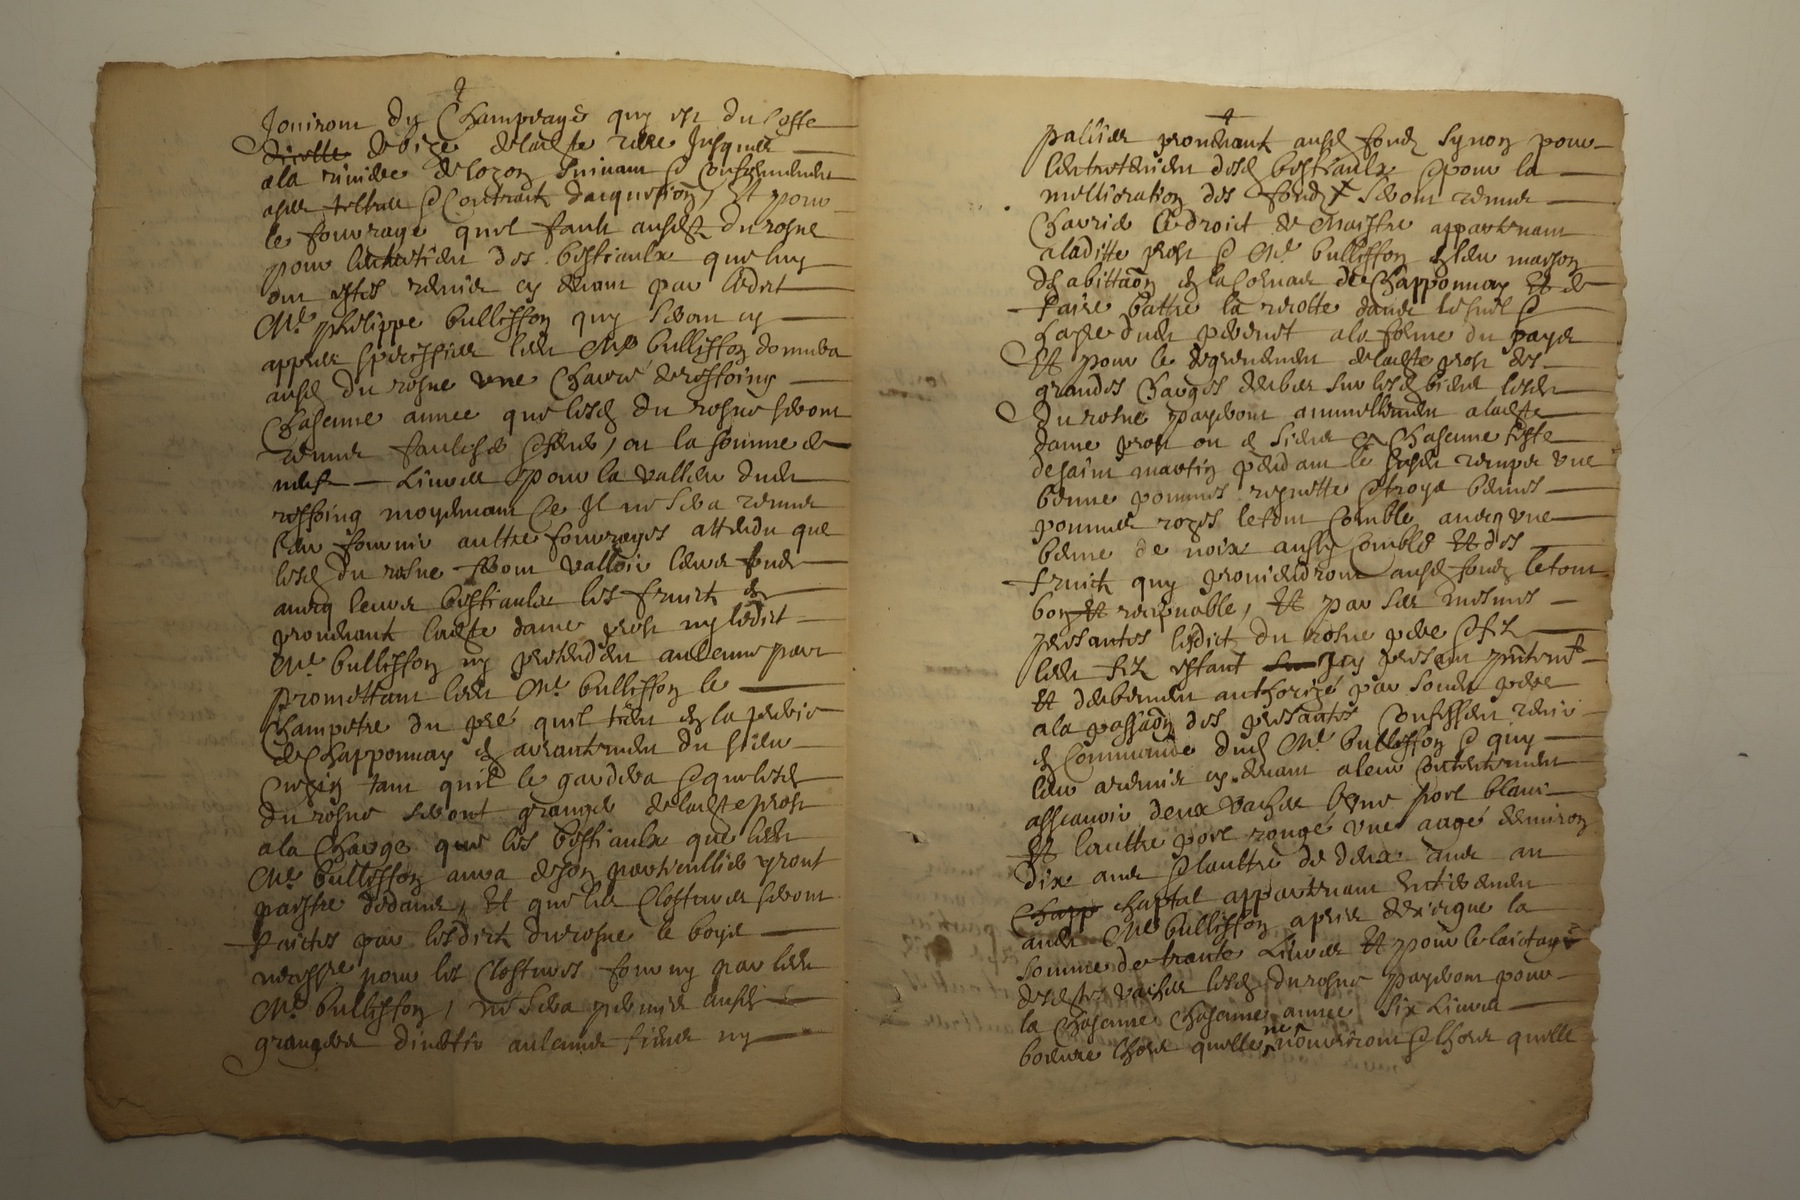 Jouiront du Champeage quy est du Costé
de bize de ladite terre Jusques
a la riviere de lozon suivant & Conformement
& Contract dacquisition, Et pour
le fourrage quil fault ausdits du rosne
pour lentretien des bestiaulx que luy
ont estés remis cy devant par ledit
Mre philippe bullisson quy seront cy
appres speciffiés ledit Mre bullisson donnera
ausd du rosne une Charré de reffoing
Chascune année que lesd du rosne seront
tenus faulcher & fener, ou la somme de
neuf Livres pour la valleur dudit
reffoing moyennant Ce Il ne sera tenu
leur fournir aultre fourrages attendu que
lesd du rosne feront valloir leurs fonds
avecq leurs bestiaulx les fruict en
provenant ladite dame prost ny ledit
Mre bullisson ny pretendent aulcune part
promettant ledit Mre bullisson le
Champetre du pré quil tient en la prairie
de Chapponnay en arrantement du sieur
tant quil le gardera & que lesd
du rosne seront grangers de ladite prost
a la Charge que les bestiaulx que ledit
Mre bullisson aura de son particullier yront
paistre dedans, Et que les Clostures seront
faictes par lesdict du rosne le boys
necessre pour les Clostures fourny par ledit
Mre bullisson, ne sera permis ausd
grangers divertir aulcuns fiens ny
pallies provenant ausd fonds synon pour
lentretenement desd bestiaulx & pour la
mellioration des fonds seront tenus
Charrier le droict de Maistre appartenant
a ladite prost & Mre bullisson leur maison
dhabittaon en la Comune de Chapponnay Et de
faire battre la recolte dans le suel &
a la forme du pays
Et pour le de ladite prost des
grandes Charges deubes sur lesd biens lesdits
Du rosne payeront annuellement a ladite
dame prost ou es siens a Chascune feste
de saint martin pendant le susdit temps une
benne pommes reynette & troys bennes
pommes rozes le tout Comble avecq une
benne de noix aussy Comble Et des
fruict quy proviendront ausd fonds le tout
bon Et recepvable, Et par ses mesmes
presantes lesdict du rosne pere & filz
ledit filz estant Icy presant
Et deubement authorizé par sondit pere
a la passaon des presantes Confessent tenir
en Commande dud Mre bullisson & quy
leur a remis cy devant a leur Contentement
asscavoir deux vaches lune poil blanc
Et laultre poil rouge une aagé denviron
dix ans & laultre de deux ans au
chaptal appartenant entierement
audit Mre bullisson apres dexigue la
somme de trante Livres Et pour le laictage
desdites vaches lesd du rosne payeront pour
la Chascune Chascune année six Livres
lhors quelles ne nourriront & lhors quelle